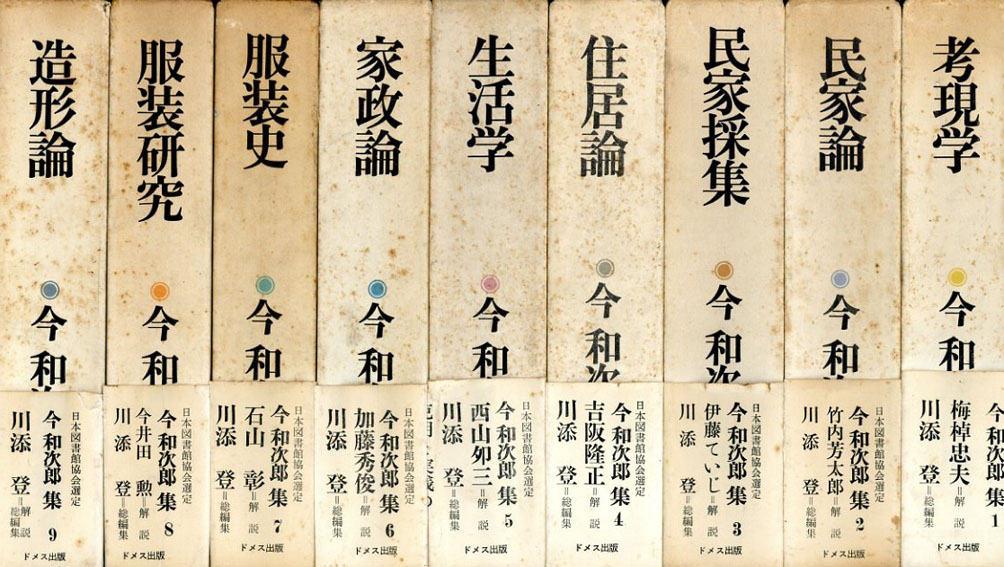 考現学
今 和
今 和次郎 集 1
梅棹忠夫=解説
川添 登=総編集
ドメス出版
民家論
今 和
日本図書館協会選定
今 和次郎 集 2
竹内芳太郎=解説
川添 登=総編集
ドメス出版
民家採集
今 和次
日本図書館協会選定
今 和次郎 集 3
伊藤ていじ=解説
川添 登=総編集
ドメス出版
住居論
今 和次
日本図書館協会選定
今 和次郎 集 4
吉阪隆正=解説
川添 登=総編集
ドメス出版
生活学
今 和
日本図書館協会選定
今 和次郎 集 5
西山夘三=解説
川添 登=総編集
ドメス出版
家政論
今 和
日本図書館協会選定
今 和次郎 集 6
加藤秀俊=解説
川添 登=総編集
ドメス出版
服装史
今 和
日本図書館協会選定
今 和次郎 集 7
石山 彰=解説
川添 登=総編集
ドメス出版
服装研究
今 和
日本図書館協会選定
今 和次郎 集 8
今井田 勲=解説
川添 登=総編集
ドメス出版
造形論
今 和
日本図書館協会選定
今 和次郎 集 9
川添 登=解説 総編集
ドメス出版